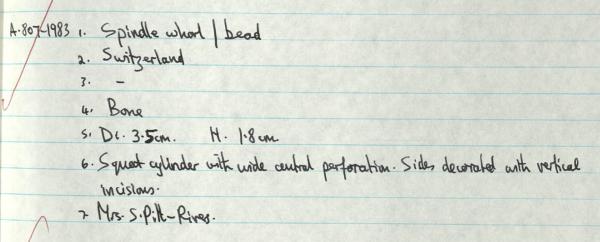 A.807-1983 1. Spindle whorl / bead
2. Switzerland
3. -
4. Bone
5. Di. 3.5cm. H. 1.8cm
6. Squat cylinder with wide central perforation. Sides decorated with vertical
incisions.
7. Mrs. S. Pitt-Rivers.